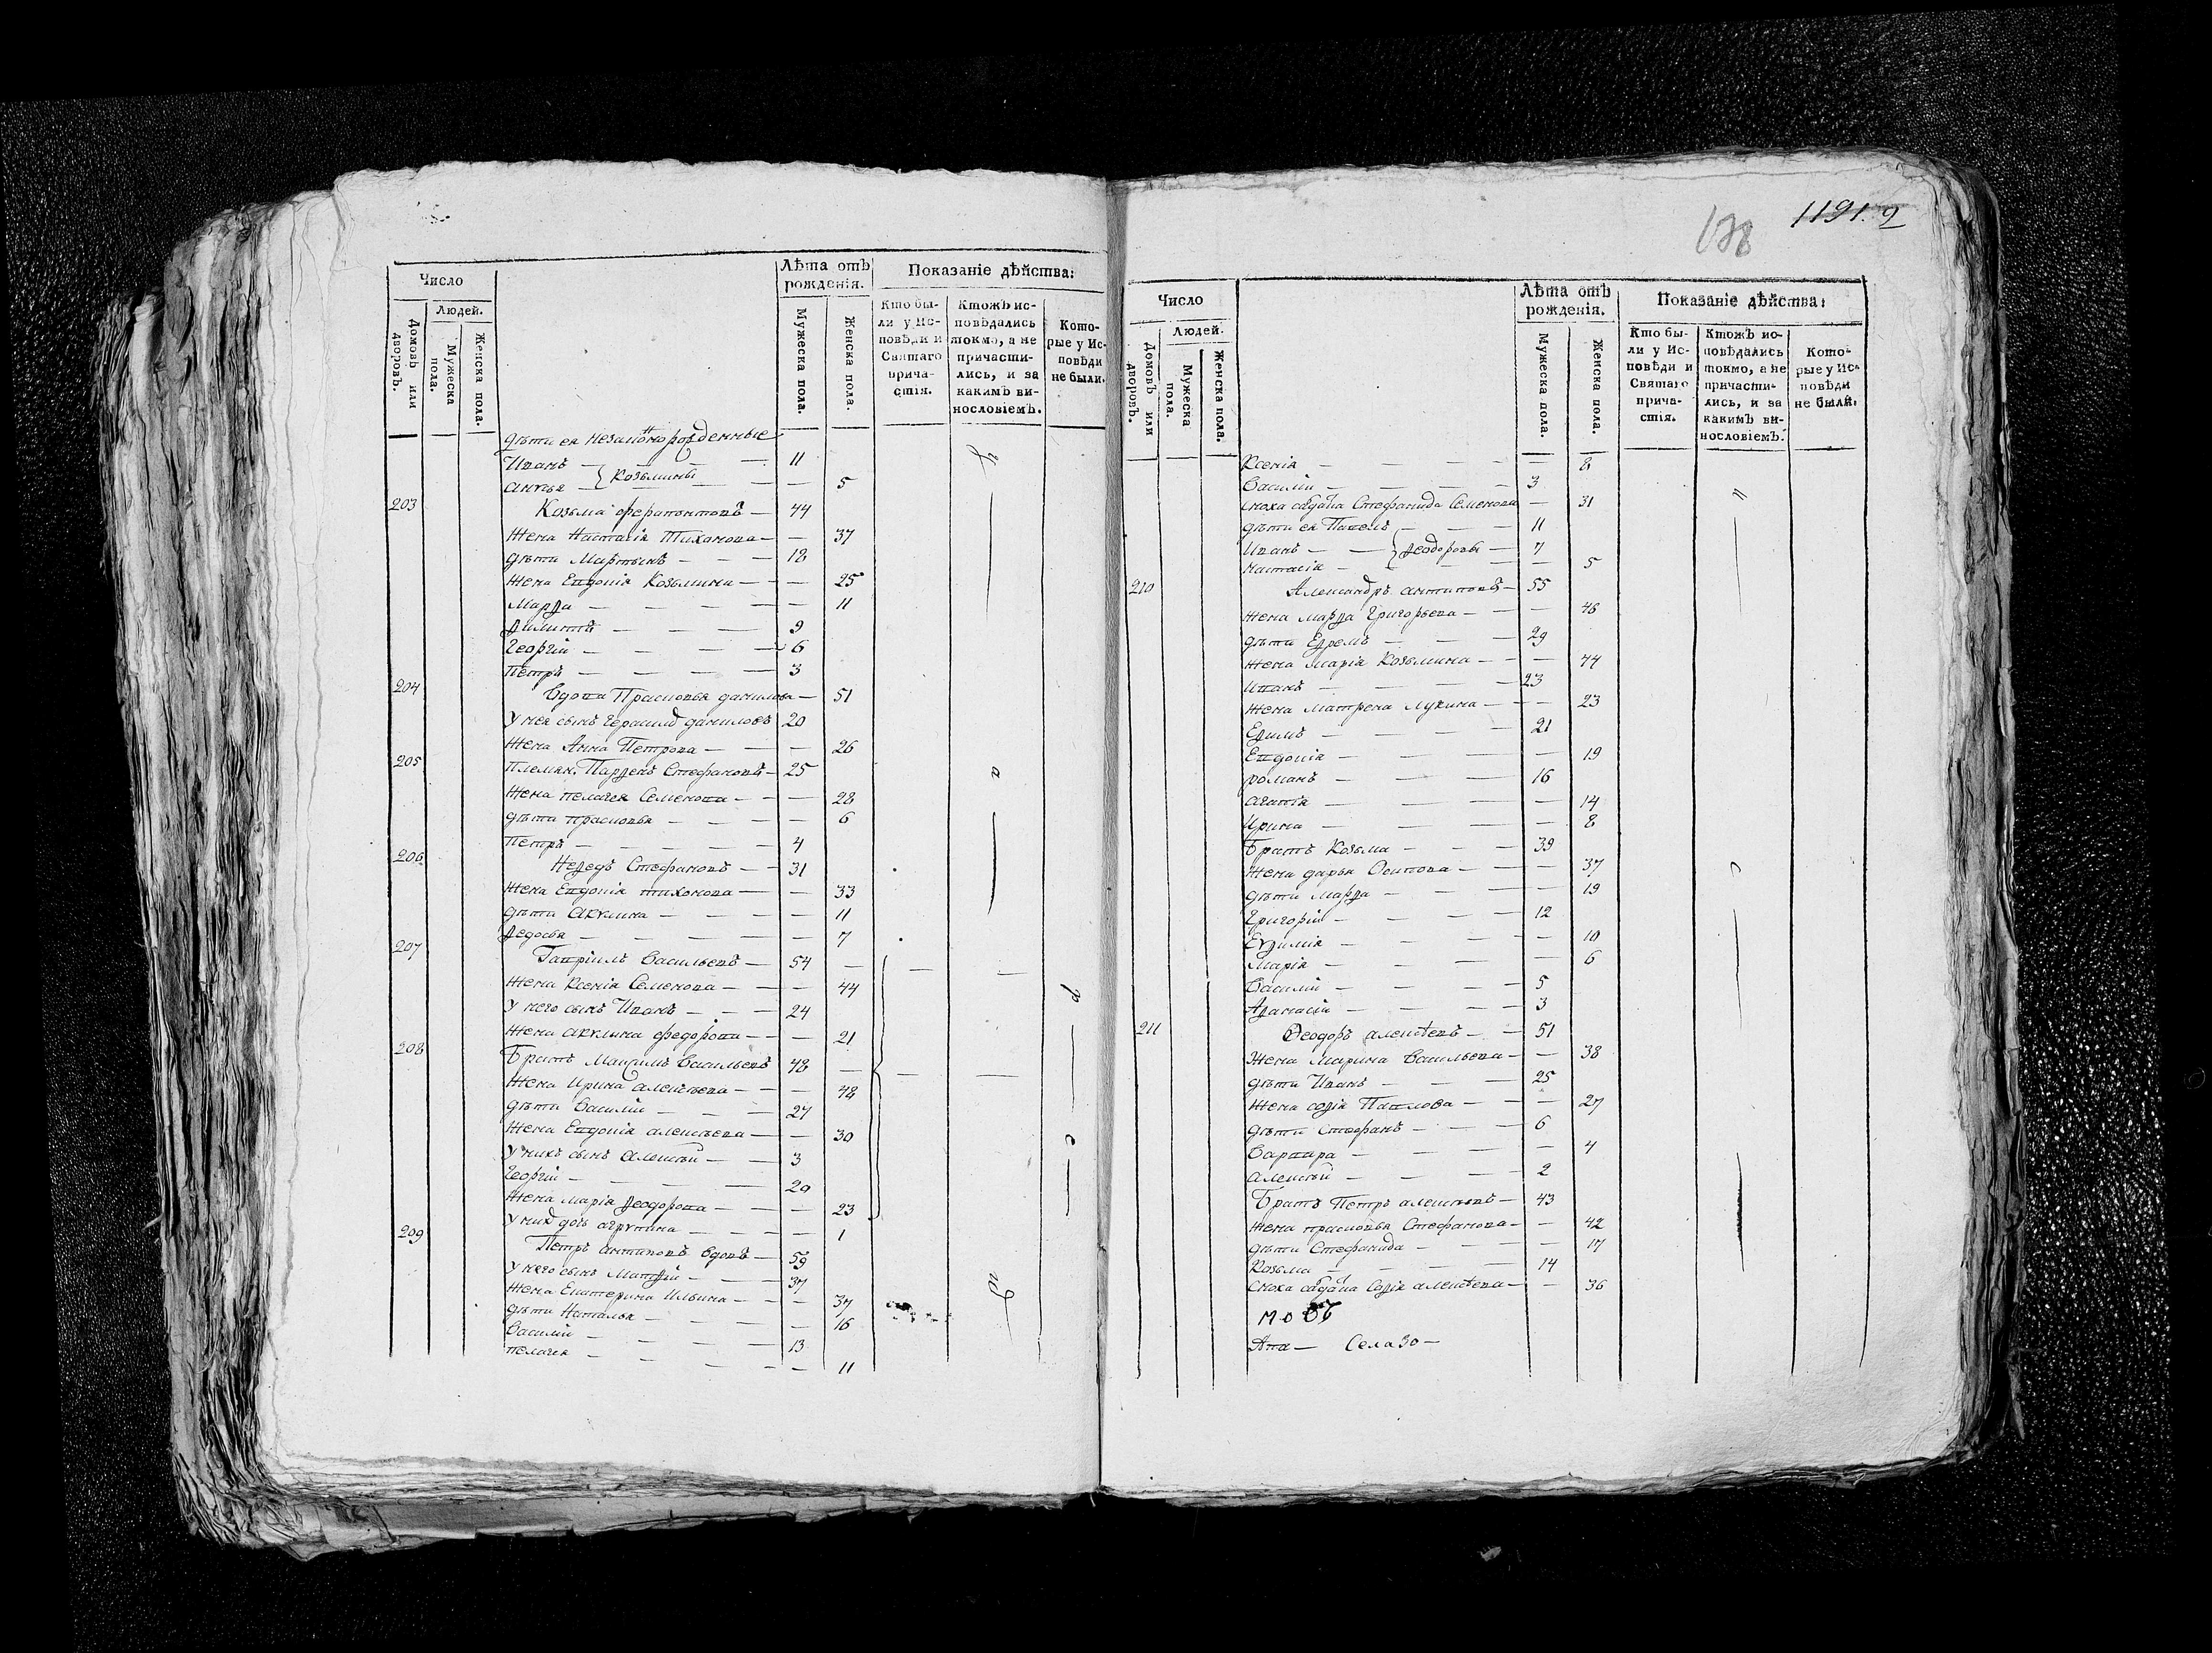 Число
Людей.
Домовъ или дворовъ.
Мужеска пола.
Женска пола.
Лѣта отъ рожденія.
Мужеска пола.
Женска пола.
Показаніе дѣйства:
Кто бы-
ли у Ис-
повѣди и
Святаго
прича-
стія.
Ктожъ ис-
повѣдались
токмо, а не
причасти-
лись, и за
какимъ ви-
нословіемъ.
Кото-
рые у Ис-
повѣди
не были.
дѣти ея незаконорожденные
Иванъ — 11
Козьмины
— 5
203 Козьма Ферапонтовъ — 44
жена Настасія Тихонова — 37
дѣти Мартынъ — 18
жена Евдокія Козьмина — 25
Марѳа — 11
Димитрій — 9
Георгій — 6
Петръ — 3
204 вдова Прасковья данилова — 51
у нея сынъ Герасимъ даниловъ 20
жена Анна Петрова — 26
205 племян. Парѳенъ Стефановъ — 25
жена пелагея Семенова — 28
дѣти прасковья — 6
петръ — 4
206 Неѳедъ Стефановъ — 31
жена Евдокія тихонова — 33
дѣти акулина — 11
ѳедосья — 7
207 Гавріилъ васильевъ — 54
жена Ксенія Семенова — 44
у него сынъ Иванъ — 24
жена акулина федорова — 21
208 братъ Максимъ васильевъ 48
жена Ирина алексѣева — 48
дѣти василій — 27
жена Евдокія алексѣева — 30
у нихъ сынъ алексѣй — 3
Георгій — 20
жена марія ѳеодорова — 23
у них дочь агрупина — 1
209 Петръ антиповъ вдовъ — 59
у него сынъ Матѳѣй — 37
жена Екатерина Ильина — 37
дѣти Наталья — 16
василій — 13
пелагея — 11
1191. 2
138
Число
Людей.
Домовъ или дворовъ.
Мужеска пола.
Женска пола.
Лѣта отъ рожденія.
Мужеска пола.
Женска пола.
Показаніе дѣйства:
Кто бы-
ли у Ис-
повѣди и
Святаго
прича-
стія.
Ктожъ ис-
повѣдались
токмо, а не
причасти-
лись, и за
какимъ ви-
нословіемъ.
Кото-
рые у Ис-
повѣди
не были.
Ксенія — 8
василій — 3
сноха Стефанида Семенова — 31
дѣти ея Павелъ — 11
Иванъ — ѳеодоровы — 7
настасія — 5
210 Александръ антиповъ — 55
жена марѳа Григорьева — 46
дѣти Еѳремъ — 29
жена марія Козьмина — 44
Иванъ — 23
жена матрена лукина — 23
Еѳимъ — 21
Евдокія — 19
романъ — 16
агапія — 14
Ирина — 8
братъ Козьма — 39
жена дарья Осипова — 37
дѣти марѳа — 19
Григорій — 12
Еѵѳимія — 10
Марія — 6
василій — 5
Аѳанасій — 3
211 Ѳеодоръ алексѣевъ — 51
жена марина васильева — 38
дѣти Иванъ — 25
жена соѳія Павлова — 27
дѣти Стефанъ — 6
варвара — 4
алексѣй — 2
братъ Петръ алексѣевъ — 43
жена прасковья Стефанова — 42
дѣти Стефанида — 17
Козьма — 14
сноха Соѳія алексѣева — 36